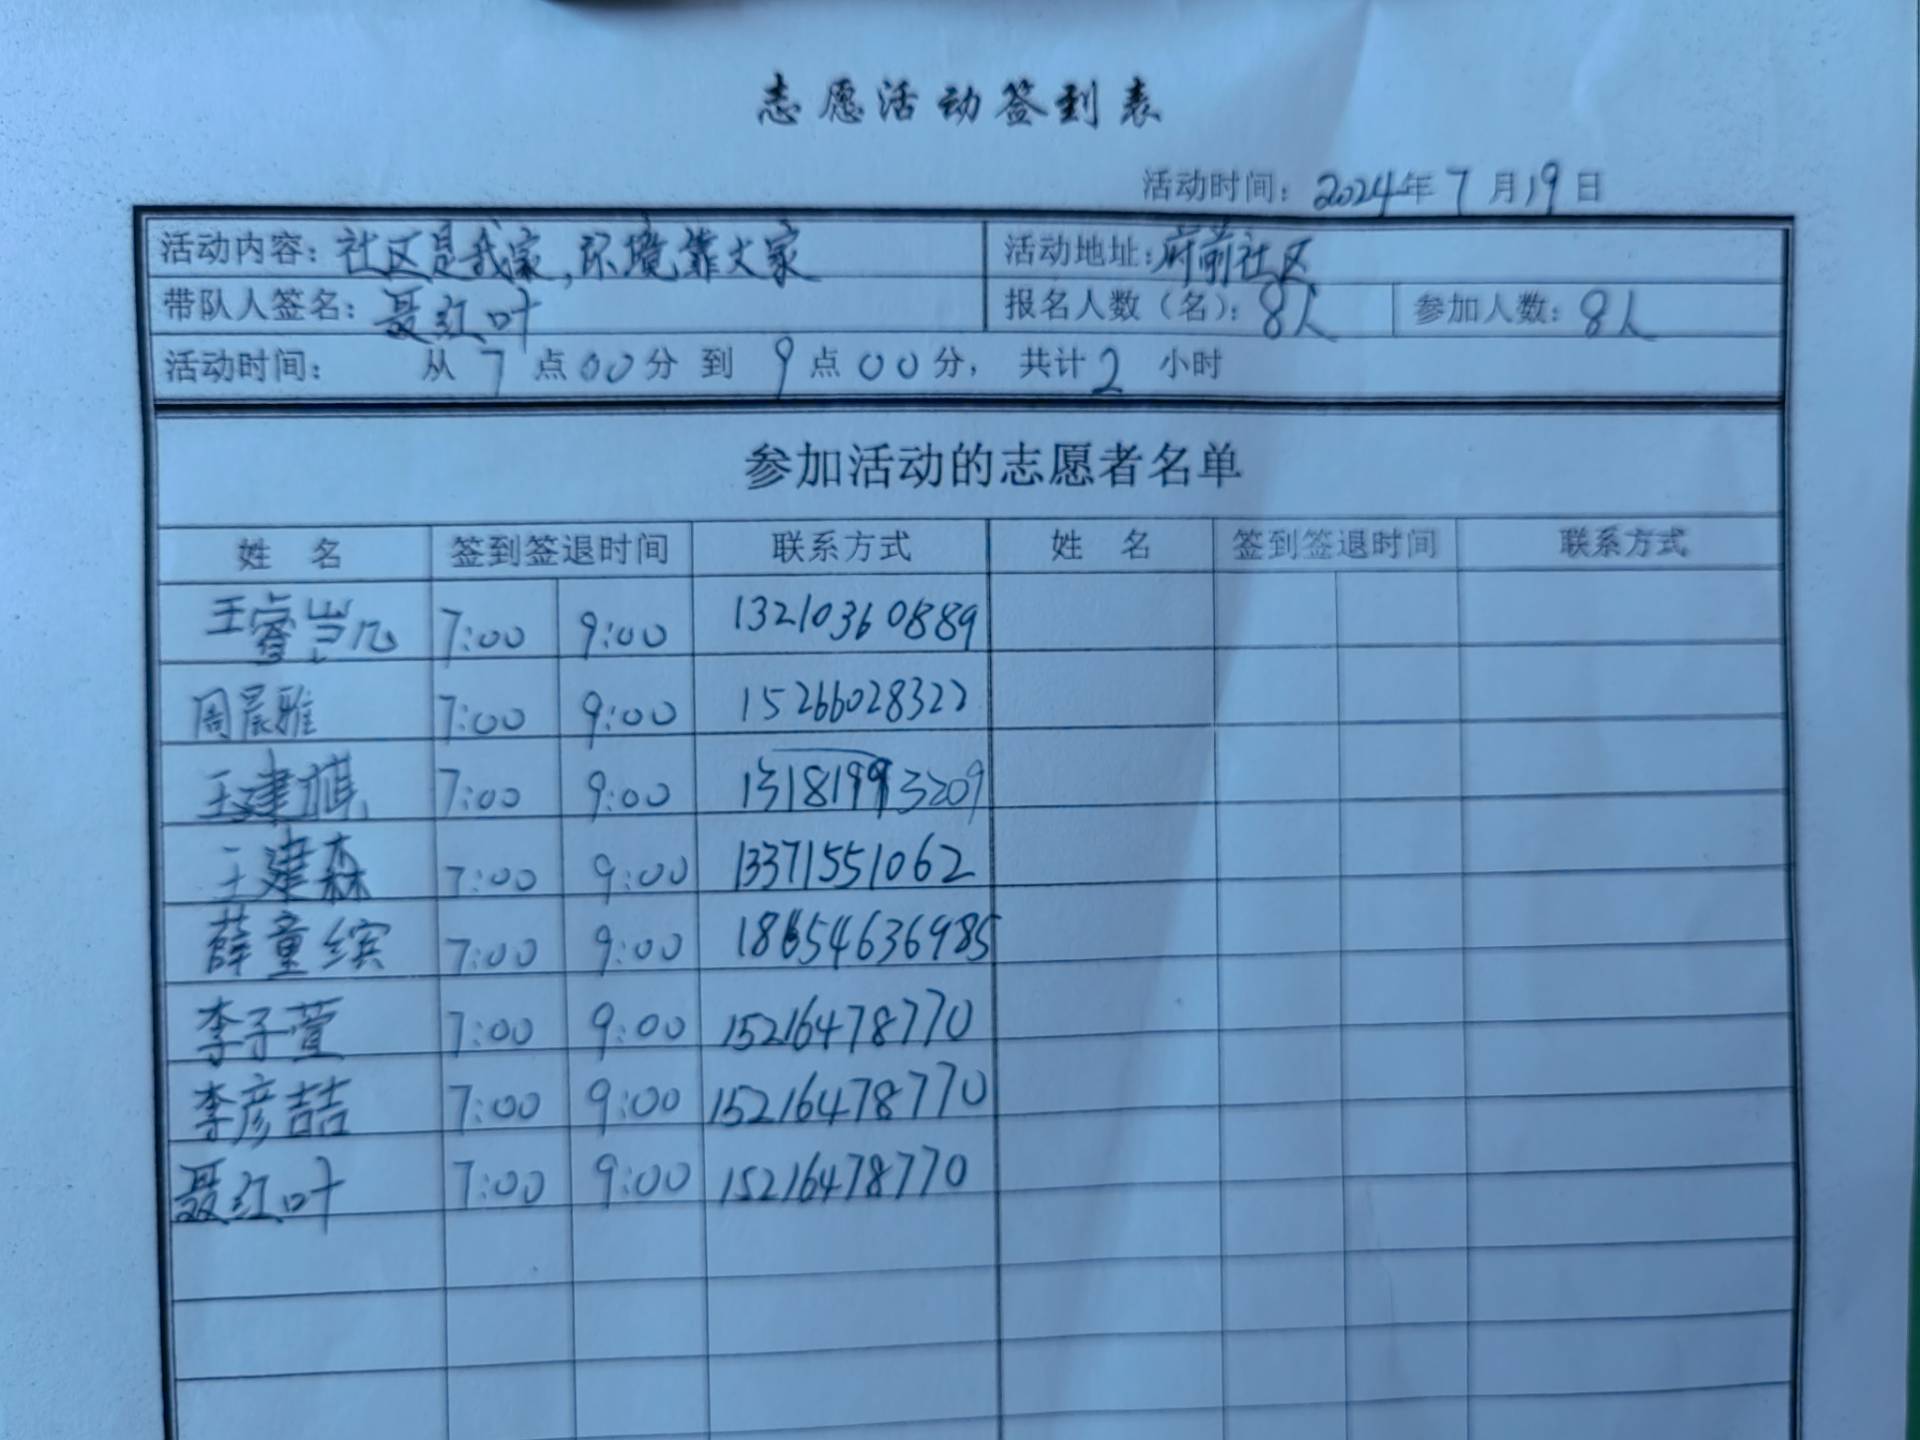 志愿活动签到表
活动时间：2024年7月19日
活动内容：社区是我家，环境靠大家 活动地址：府前社区
带队人签名：聂红叶 报名人数（名）：8人 参加人数：8人
活动时间： 从7点00分到9点00分， 共计2小时
参加活动的志愿者名单
姓 名 签到签退时间 联系方式 姓 名 签到签退时间 联系方式
王睿岂凡 7:00 9:00 13210360889
周晨雅 7:00 9:00 15266028322
王建祺 7:00 9:00 13181993209
王建森 7:00 9:00 13371551062
薛童缤 7:00 9:00 18654636985
李子萱 7:00 9:00 15216478770
李彦喆 7:00 9:00 15216478770
聂红叶 7:00 9:00 15216478770